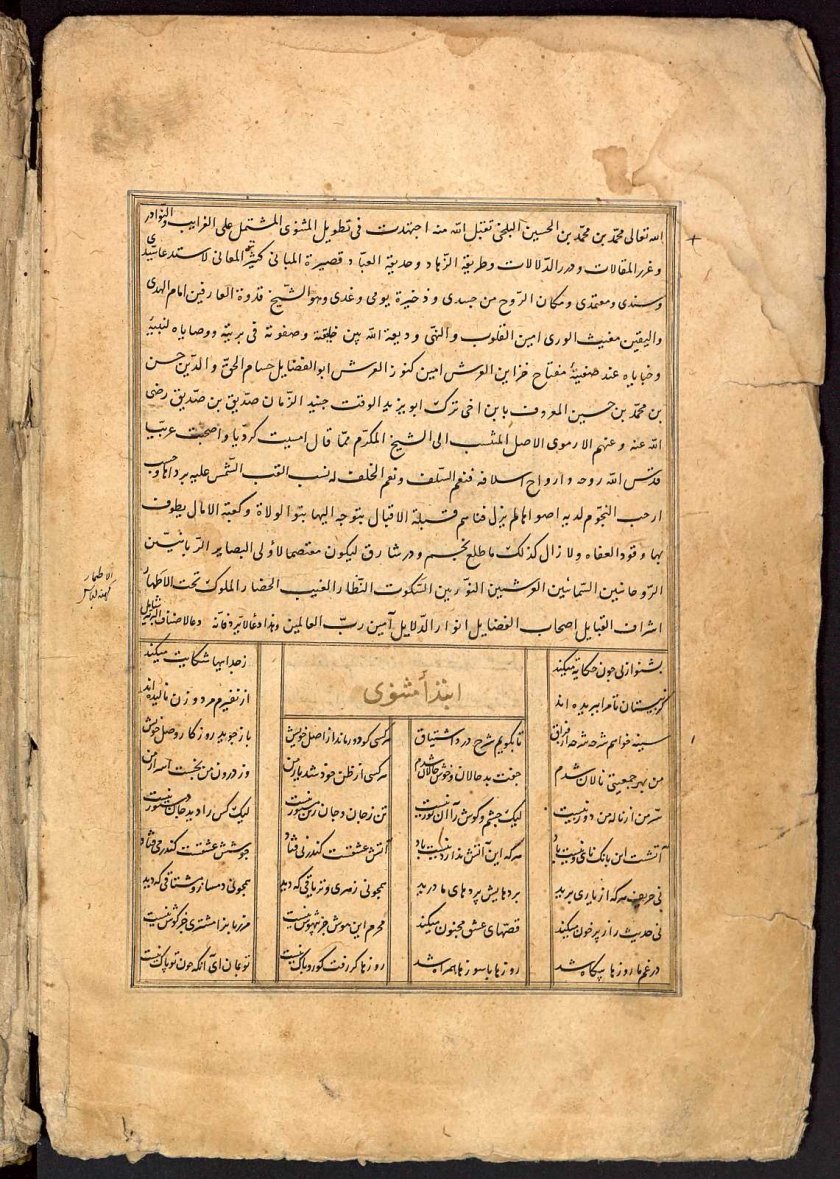 الله تعالی محمد بن محمد بن الحسین البلخی تقبل الله منه اجتهدت فی تطویل المثنوی المشتمل علی الغرایب والنوادر
و غرر المقالات و درر الدلالات و طریقة الزهاد و حدیقة العباد قصیرة المبانی کثیرة المعانی لاستدعاء سیدی
و سندی و معتمدی و مکان الروح من جسدی و ذخیرة یومی و غدی و هو الشیخ قدوة العارفین امام الهدی
والیقین مغیث الوری امین القلوب والنهی ودیعة الله بین خلیقته و صفوته فی بریته و وصایاه لنبیه
و خبایاه عند صفیه مفتاح خزاین العرش امین کنوز الفرش ابو الفضایل حسام الحق والدین حسن
بن محمد بن حسین المعروف بابن اخی ترک ابو یزید الوقت جنید الزمان صدیق بن صدیق رضی
الله عنه و عنهم الارموی الاصل المنتسب الی الشیخ المکرم بما قال امسیت کردیا و اصبحت عربیا
قدس الله روحه و ارواح اسلافه فنعم السلف و نعم الخلف له نسب القت الشمس علیه رداءها و حسب
ارخت النجوم لدیه اضواءها لم یزل فناءهم قبلة الاقبال یتوجه الیها بنو الولاة و کعبة الامال یطوف
بها وفود العفاه و لا زال کذلک ما طلع نجم و ذر شارق لیکون معتصما لاولی البصایر الربانیین
الروحانیین السمائیین العرشیین النوریین السکوت النظار الغیب الحضار الملوک تحت الاطمار
اشراف القبایل اصحاب الفضایل انوار الدلایل آمین رب العالمین و هذا دعاء لا یرد فانه دعاء لاصناف البریة شامل
ابتدأ مثنوی
بشنو از نی چون حکایة میکند
ز جداییها شکایت میکند
کز نیستان تا مرا ببریده اند
از نفیرم مرد و زن نالیده اند
سینه خواهم شرحه شرحه از فراق
تا بگویم شرح درد اشتیاق
هر کسی کو دور ماند از اصل خویش
باز جوید روزگار وصل خویش
من بهر جمعیتی نالان شدم
جفت بد حالان و خوش حالان شدم
هر کسی از ظن خود شد یار من
وز درون من نجست اسرار من
سر من از ناله من دور نیست
لیک چشم و کوش را آن نور نیست
تن ز جان و جان ز تن مستور نیست
لیک کس را دید جان دستور نیست
آتشست این بانک نای و نیست باد
هر که این آتش ندارد نیست باد
آتش عشقست کندر نی فتاد
جوشش عشقست کندر می فتاد
نی حریف هر که از یاری برید
پردهایش پردهای ما درید
همچو نی زهری و تریاقی که دید
همچو نی دمساز و مشتاقی که دید
نی حدیث راز پر خون میکند
قصهای عشق مجنون میکند
محرم این هوش جز بیهوش نیست
مر زبانرا مشتری جز کوش نیست
در غم ما روزها بیکاه شد
روزها با سوزها همراه شد
روزها کر رفت کو رو باک نیست
تو بمان ای آنکه چون تو پاک نیست
الاطمار